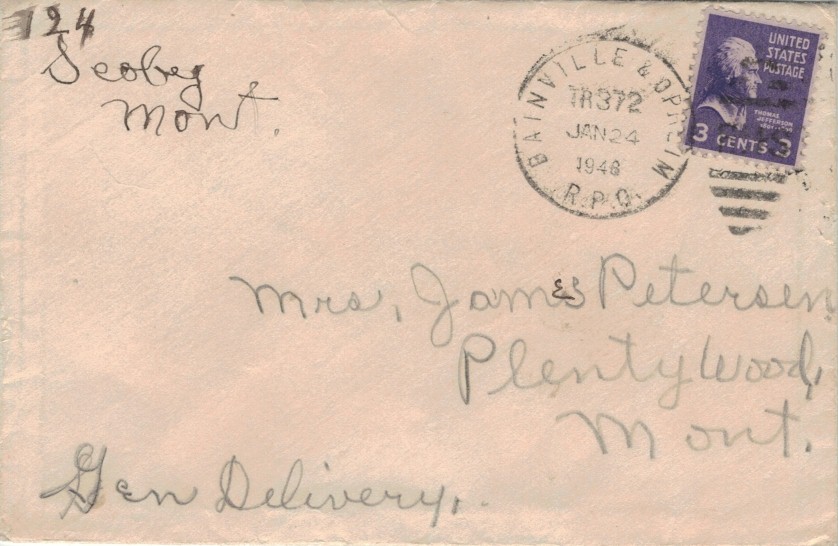 124
Scobey
Mont.
BAINVILLE & OPHEIM
TR372
JAN 24
1948
R.P.O.
UNITED
STATES
POSTAGE
THOMAS
JEFFERSON
3 CENTS 3
Mrs. James Petersen
Plentywood,
Mont.
Gen Delivery.